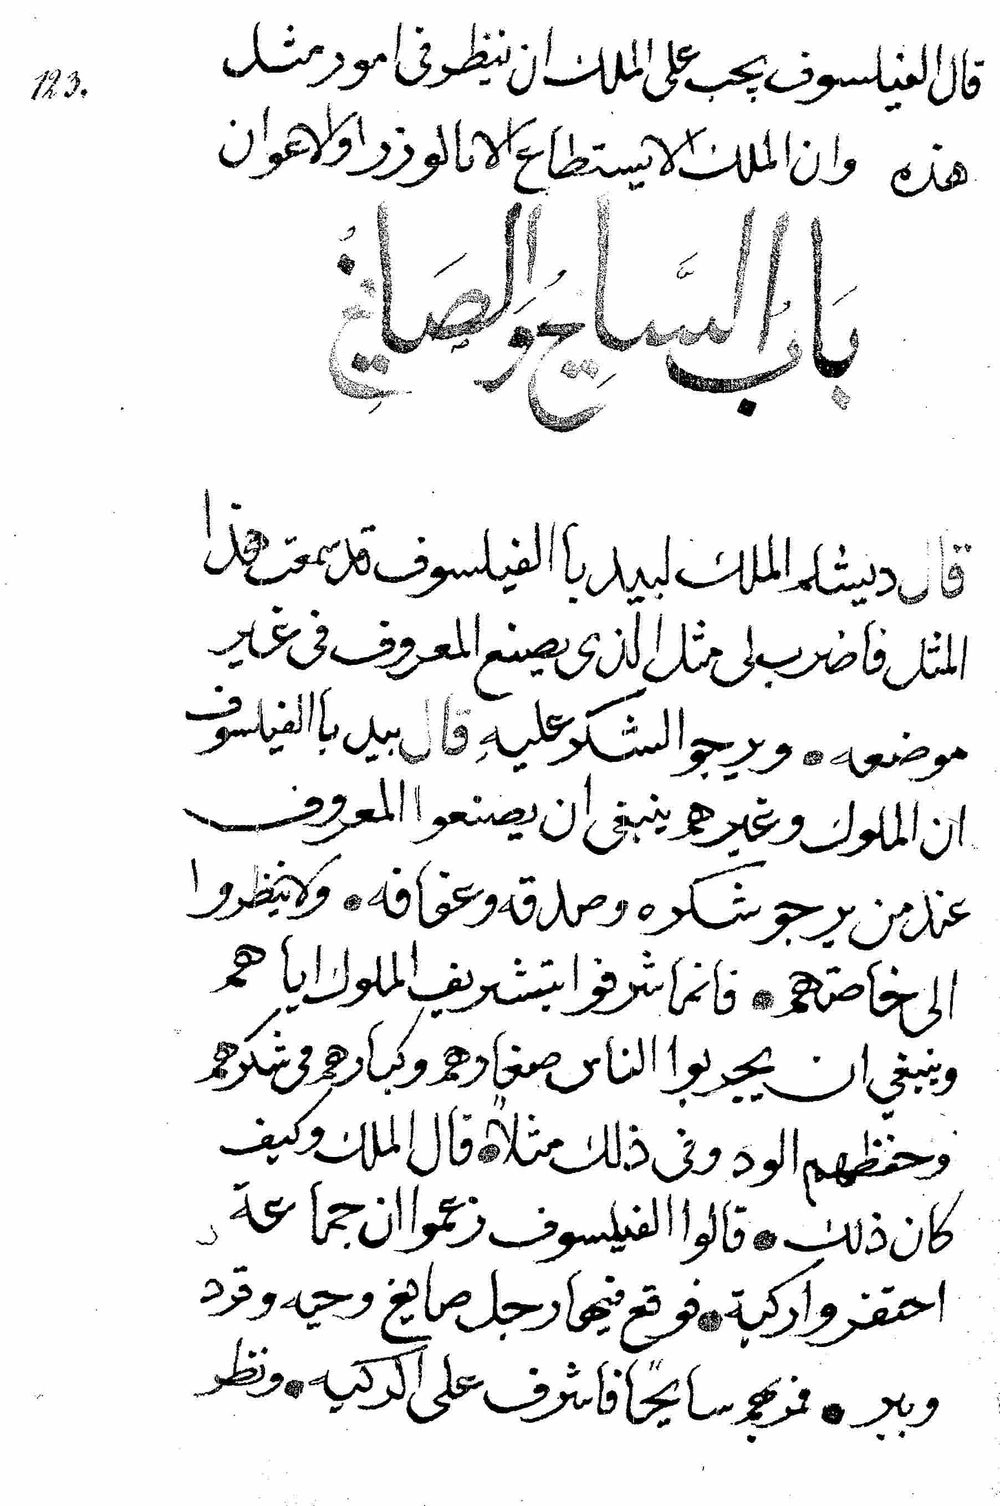 123.
قال الفيلسوف يجب على الملك ان ينظر فى امور مثل
هذه وان الملك لا يستطاع الا بالوزرا والاعوان
بَابُ السَّايِحُ وَالصَايِغُ
قال ديشلم الملك لبيد با الفيلسوف قد سمعت هذا
المثل فاضرب لى مثل الذى يصنع المعروف فى غير
موضعه • ويرجوا الشكر عليهِ قال بيد با الفيلسوف
ان الملوك وغيرهم ينبغى ان يصنعوا المعروف
عند من يرجو شكره وصدقه وعفافه • ولا ينظروا
الى خاصتهم • فانما شرفوا بتشريف الملوك اياهم
وينبغي ان يجربوا الناس صغارهم وكبارهم فى شكرهم
وحفظهم الود وفى ذلك مثلاً • قال الملك وكيف
كان ذلك • قالوا الفيلسوف زعموا ان جماعة
احتفروا ركية • فوقع فيها رجل صايغ وحيه وقرد
وببر • فمر بهم سايحًا فاشرف على الركيه • ونظر